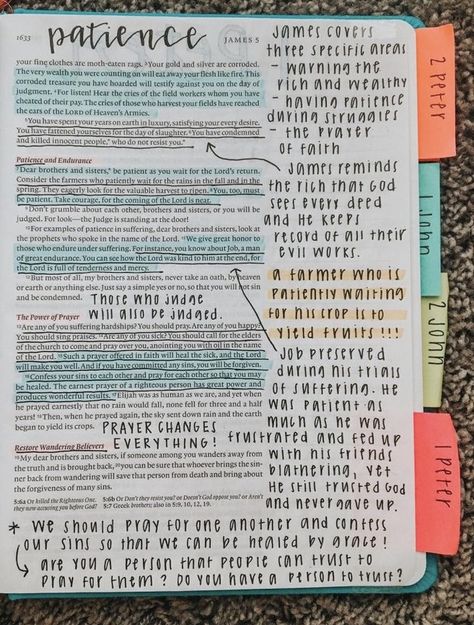 1633
patience
JAMES 5
your fine clothes are moth-eaten rags. ³Your gold and silver are corroded.
The very wealth you were counting on will eat away your flesh like fire. This
corroded treasure you have hoarded will testify against you on the day of
judgment. ⁴For listen! Hear the cries of the field workers whom you have
cheated of their pay. The cries of those who harvest your fields have reached
the ears of the LORD of Heaven's Armies.
⁵You have spent your years on earth in luxury, satisfying your every desire.
You have fattened yourselves for the day of slaughter. ⁶You have condemned
and killed innocent people,* who do not resist you.*
Patience and Endurance
⁷Dear brothers and sisters,* be patient as you wait for the Lord's return.
Consider the farmers who patiently wait for the rains in the fall and in the
spring. They eagerly look for the valuable harvest to ripen. ⁸You, too, must
be patient. Take courage, for the coming of the Lord is near.
⁹Don't grumble about each other, brothers and sisters, or you will be
judged. For look—the Judge is standing at the door!
¹⁰For examples of patience in suffering, dear brothers and sisters, look at
the prophets who spoke in the name of the Lord. ¹¹We give great honor to
those who endure under suffering. For instance, you know about Job, a man
of great endurance. You can see how the Lord was kind to him at the end, for
the Lord is full of tenderness and mercy.
¹²But most of all, my brothers and sisters, never take an oath, by heaven
or earth or anything else. Just say a simple yes or no, so that you will not sin
and be condemned.
Those who judge
will also be judged.
The Power of Prayer
¹³Are any of you suffering hardships? You should pray. Are any of you happy?
You should sing praises. ¹⁴Are any of you sick? You should call for the elders
of the church to come and pray over you, anointing you with oil in the name
of the Lord. ¹⁵Such a prayer offered in faith will heal the sick, and the Lord
will make you well. And if you have committed any sins, you will be forgiven.
¹⁶Confess your sins to each other and pray for each other so that you may
be healed. The earnest prayer of a righteous person has great power and
produces wonderful results. ¹⁷Elijah was as human as we are, and yet when
he prayed earnestly that no rain would fall, none fell for three and a half
years! ¹⁸Then, when he prayed again, the sky sent down rain and the earth
began to yield its crops.
PRAYER CHANGES
EVERYTHING!
Restore Wandering Believers
¹⁹My dear brothers and sisters, if someone among you wanders away from
the truth and is brought back, ²⁰you can be sure that whoever brings the sin-
ner back from wandering will save that person from death and bring about
the forgiveness of many sins.
5:6a Or killed the Righteous One. 5:6b Or Don't they resist you? or Doesn't God oppose you? or Aren't
they now accusing you before God? 5:7 Greek brothers; also in 5:9, 10, 12, 19.
James covers
three specific areas
- warning the
rich and wealthy
- having patience
during struggles
- the prayer
of faith
James reminds
the rich that God
sees every deed
and He keeps
record of all their
evil works.
a farmer who is
patiently waiting
for his crop is to
yield fruits!!!
Job preserved
during his trials
of suffering. He
was patient as
much as he was
frustrated and fed up
with his friends
blathering, yet
He still trusted God
and never gave up.
* We should pray for one another and confess
our sins so that we can be healed by grace!
are you a person that people can trust to
pray for them? Do you have a person to trust?
2 Peter
1 John
2 John
1 Peter